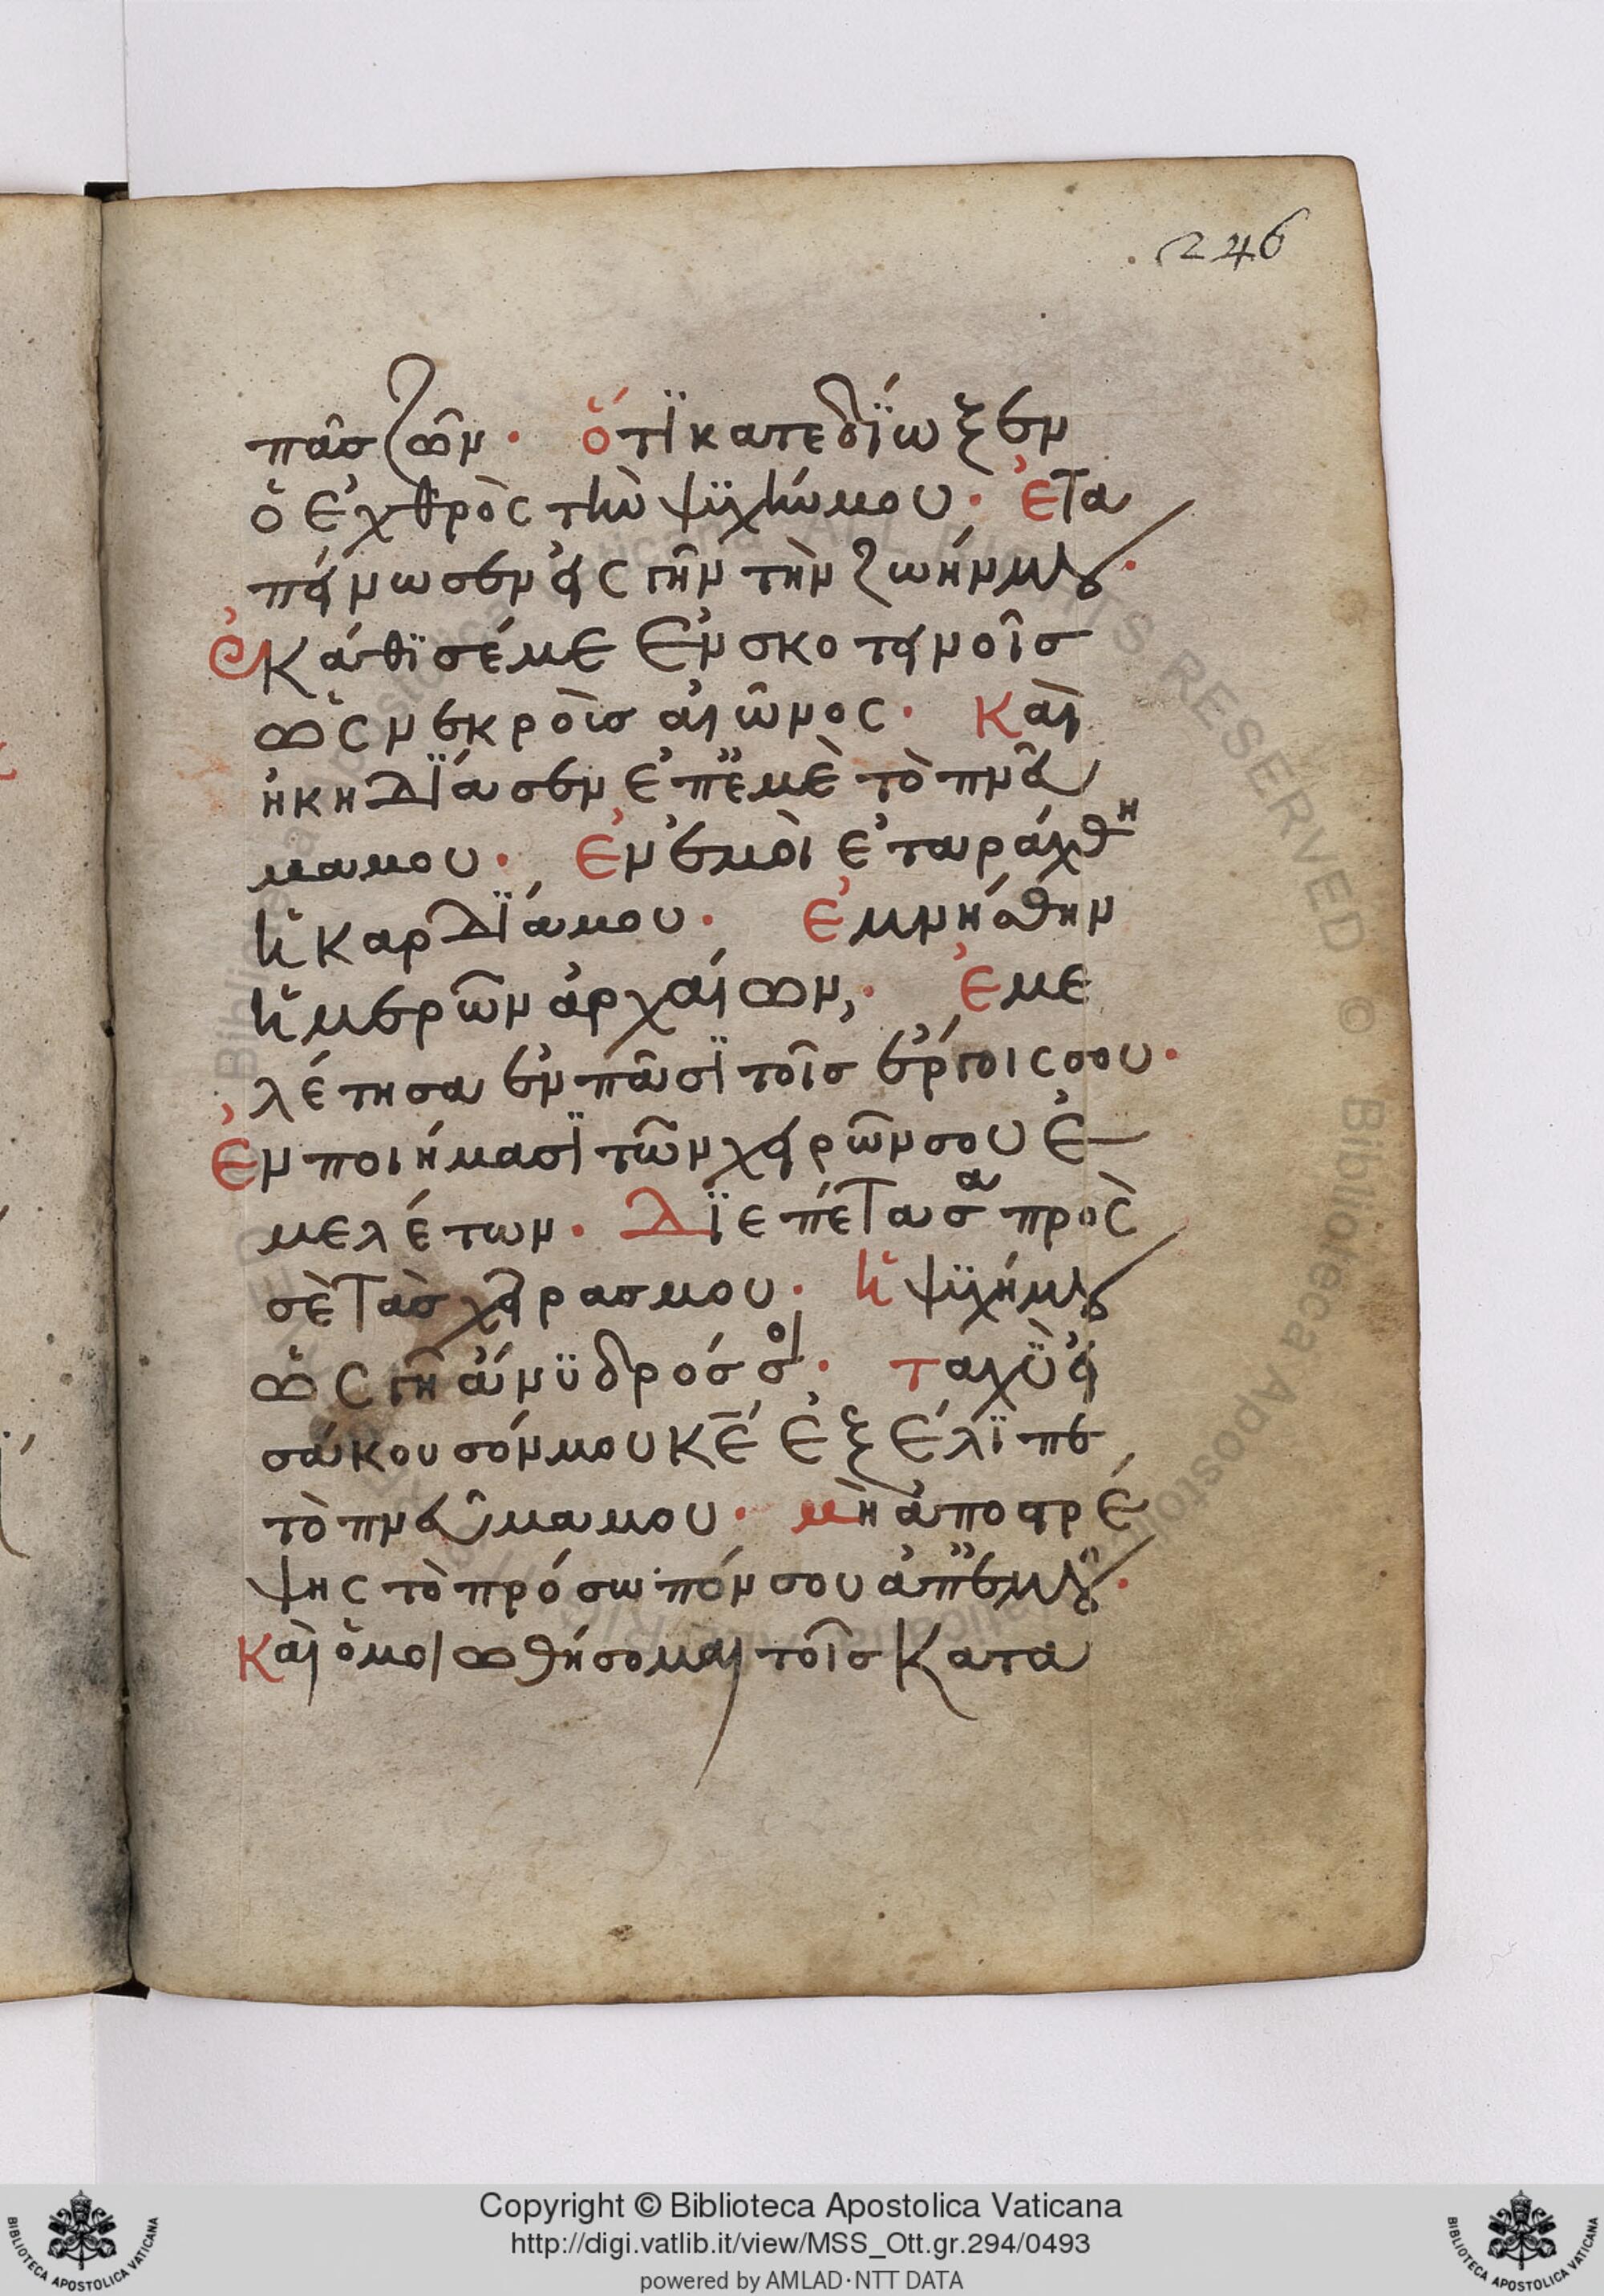 246
πᾶσ ζῶν· ὅτϊ κατεδΐωξεν
ὁ ἐχθρὸς τὴν ψϋχήν μου· ἐτα
πείνωσεν εἰς γῆν τὴν ζωήν μου·
ἐκάθϊσέ με ἐν σκοτεινοῖσ
ὡς νεκροὺσ αἰῶνος· Καὶ
ἠκηδΐασεν ἐπ' ἐμὲ τὸ πνεῦ
μα μου· ἐν ἐμοὶ ἐταράχθη
ἡ καρδΐα μου· ἐμνήσθην
ἡμερῶν ἀρχαίων, · ἐμε
λέτησα ἐν πᾶσϊ τοῖσ ἔργοις σου·
ἐν ποιήμασϊ τῶν χειρῶν σου ἐ
μελέτων· Δϊεπέτασα πρὸς
σὲ τὰσ χεῖρασ μου· ἡ ψϋχή μου
ὡς γῆ ἄνϋδρόσ σοι· ταχϋ εἰ
σάκουσόν μου κε ἐξέλϊπε
τὸ πνεῦμα μου· μὴ ἀποστρέ
ψης τὸ πρόσωπόν σου ἀπ' ἐμοῦ·
Καὶ ὁμοιωθήσομαι τοῖσ κατα
Copyright © Biblioteca Apostolica Vaticana
http://digi.vatlib.it/view/MSS_Ott.gr.294/0493
powered by AMLAD·NTT DATA
BIBLIOTECA APOSTOLICA VATICANA
BIBLIOTECA APOSTOLICA VATICANA